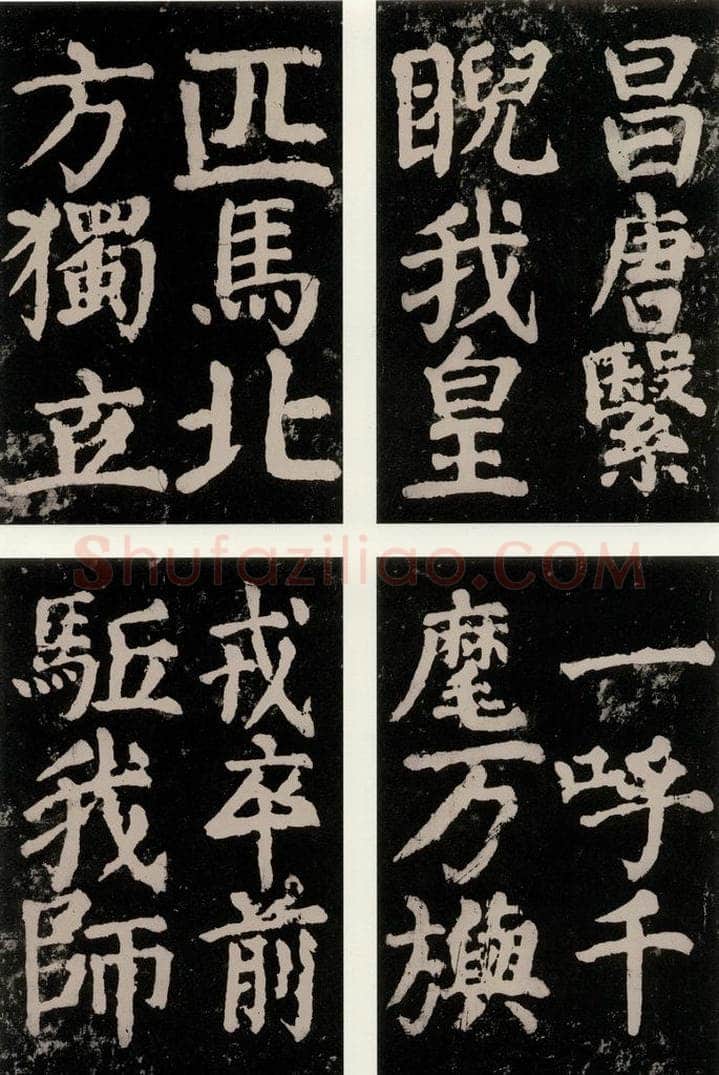 昌唐繄
睨我皇
匹馬北
方獨立
一呼千
麾万旟
戎卒前
駈我師
Shufaziliao.COM